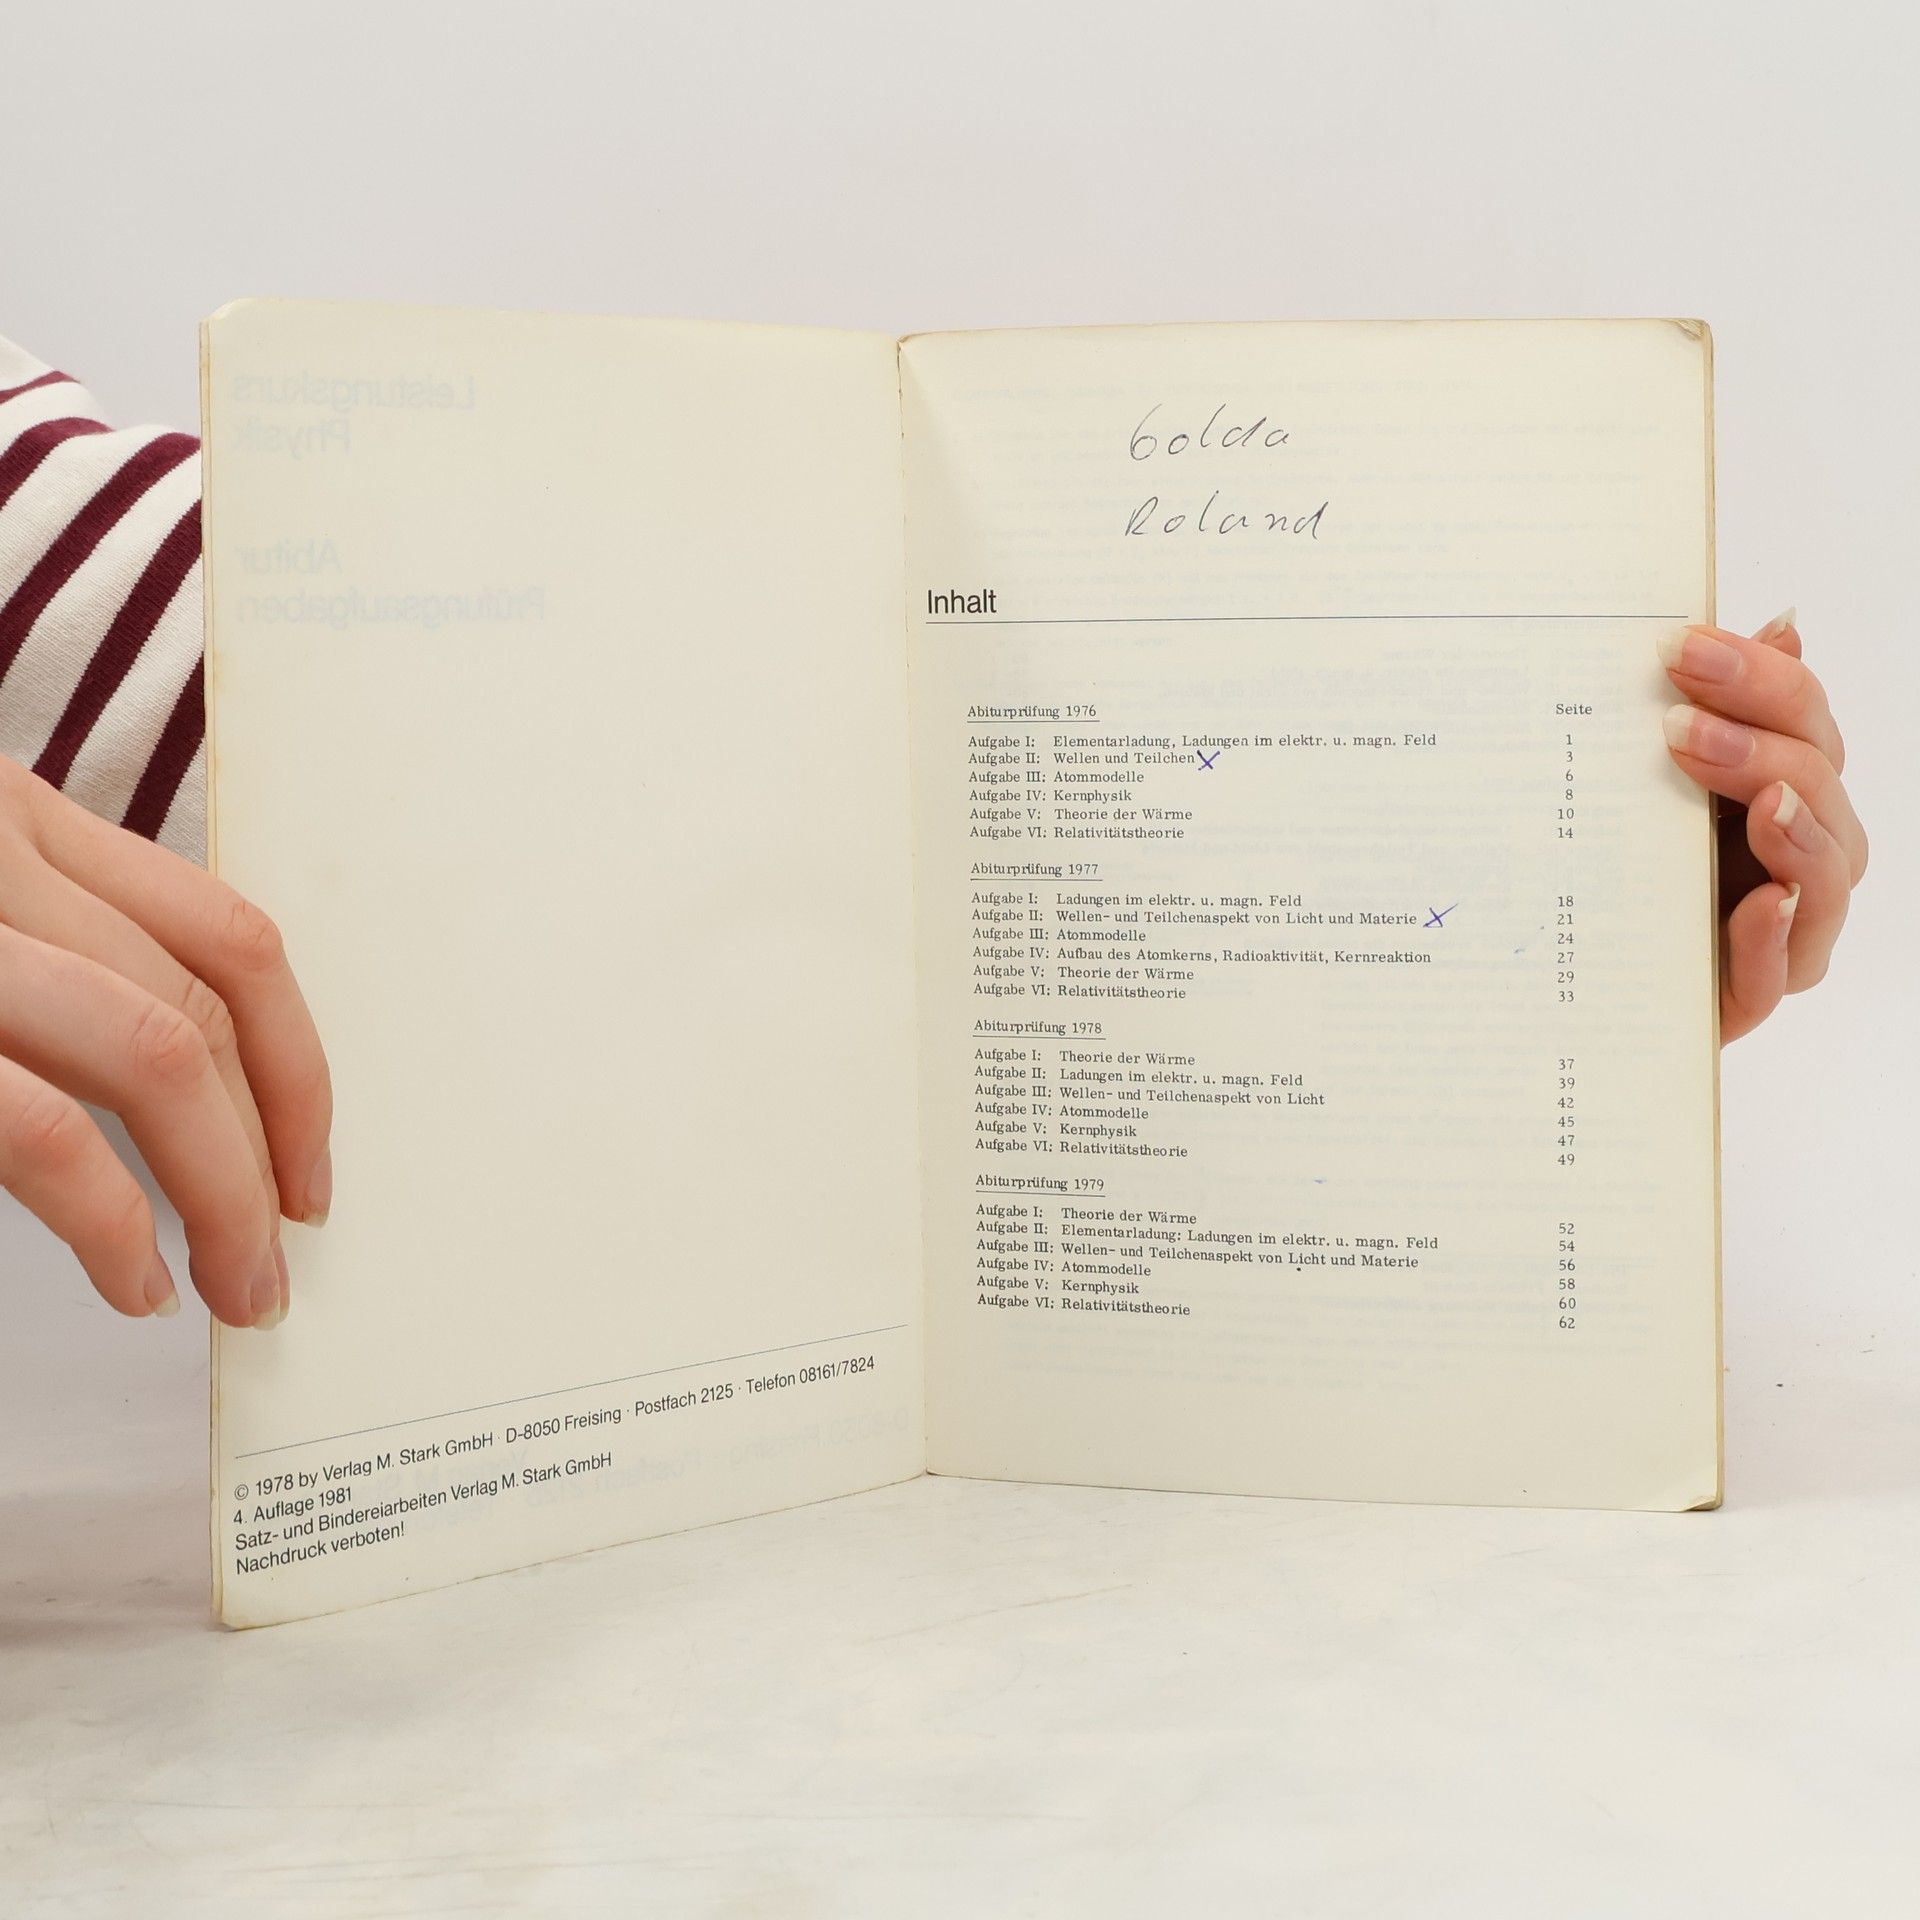 © 1978 by Verlag M. Stark GmbH · D-8050 Freising · Postfach 2125 · Telefon 08161/7824
4. Auflage 1981
Satz- und Bindereiarbeiten Verlag M. Stark GmbH
Nachdruck verboten!
Golda
Roland
Inhalt
Abiturprüfung 1976 Seite
Aufgabe I: Elementarladung, Ladungen im elektr. u. magn. Feld 1
Aufgabe II: Wellen und Teilchen X 3
Aufgabe III: Atommodelle 6
Aufgabe IV: Kernphysik 8
Aufgabe V: Theorie der Wärme 10
Aufgabe VI: Relativitätstheorie 14
Abiturprüfung 1977
Aufgabe I: Ladungen im elektr. u. magn. Feld 18
Aufgabe II: Wellen- und Teilchenaspekt von Licht und Materie X 21
Aufgabe III: Atommodelle 24
Aufgabe IV: Aufbau des Atomkerns, Radioaktivität, Kernreaktion 27
Aufgabe V: Theorie der Wärme 29
Aufgabe VI: Relativitätstheorie 33
Abiturprüfung 1978
Aufgabe I: Theorie der Wärme 37
Aufgabe II: Ladungen im elektr. u. magn. Feld 39
Aufgabe III: Wellen- und Teilchenaspekt von Licht 42
Aufgabe IV: Atommodelle 45
Aufgabe V: Kernphysik 47
Aufgabe VI: Relativitätstheorie 49
Abiturprüfung 1979
Aufgabe I: Theorie der Wärme 52
Aufgabe II: Elementarladung; Ladungen im elektr. u. magn. Feld 54
Aufgabe III: Wellen- und Teilchenaspekt von Licht und Materie 56
Aufgabe IV: Atommodelle 58
Aufgabe V: Kernphysik 60
Aufgabe VI: Relativitätstheorie 62